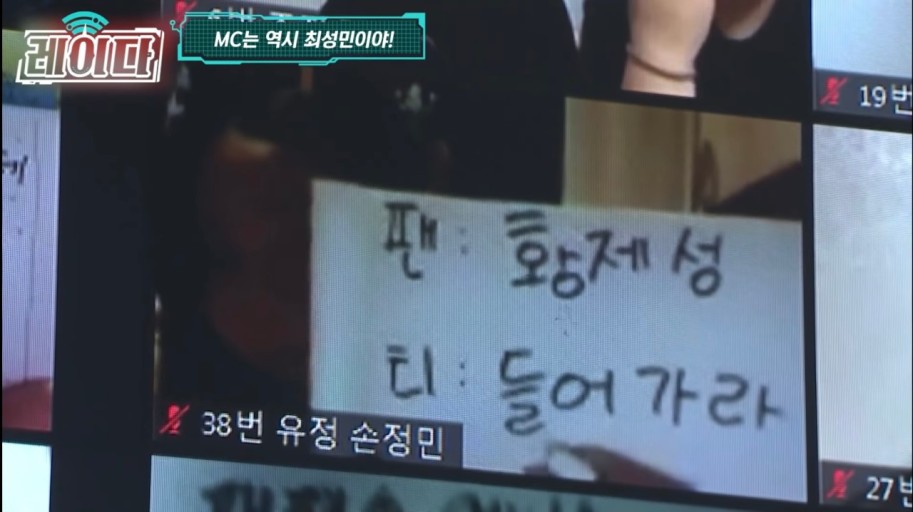 레이다
MC는 역시 최성민이야!
19번
팬 : 황제성
티 : 들어가라
38번 유정 손정민
27번